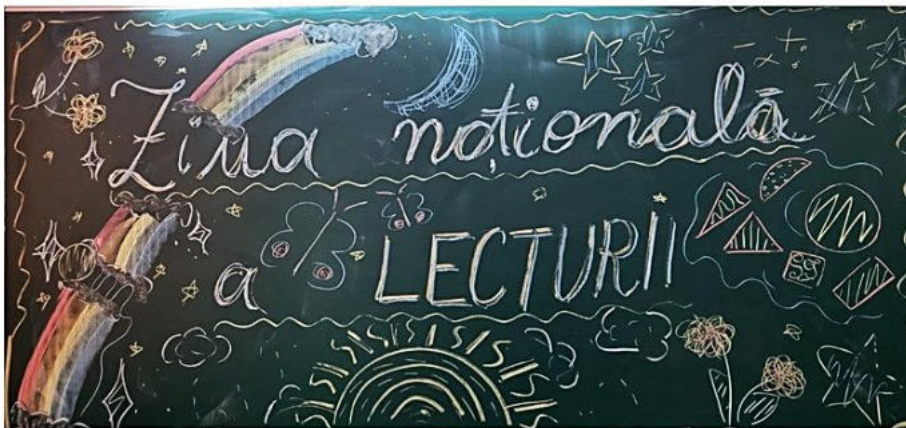 Ziua națională
a LECTURII